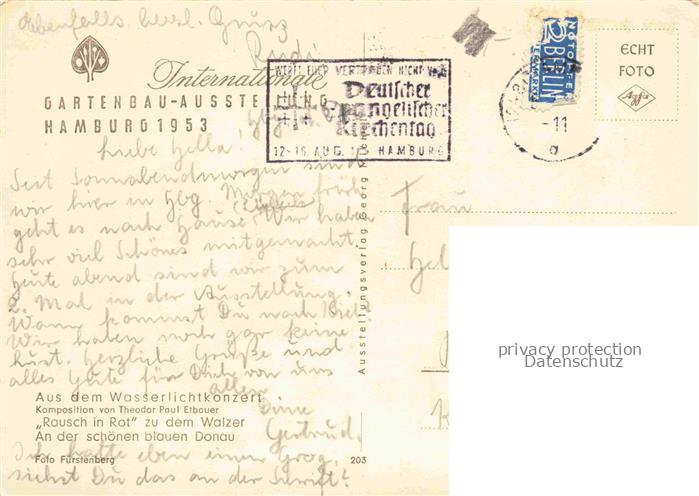 Ebenfalls herzl. Gruss
Rudi
Internationale
GARTENBAU-AUSSTELLUNG
HAMBURG 1953
WERT DER VERTRAUEN NICHT WEG
Deutscher
Evangelischer
Kirchentag
12-16. AUG. HAMBURG
NOTOPFER
2 BERLIN
STEUERMARKE
-11
a
ECHT
FOTO
Agfa
Liebe Hella!
Seit Sonnabendmorgen sind
wir hier in Hbg. Morgen früh
geht es nach Hause. Wir haben
sehr viel Schönes mitgemacht.
Heute abend sind wir zum
2. Mal in der Ausstellung.
Wann kommst Du nach
Wir haben noch gar keine
Lust. Herzliche Grüße und
alles Gute für Dich von uns
allen
Deine
Gertrud.
Ich hatte eben einen Grog,
siehst Du das an der Schrift?
Aus dem Wasserlichtkonzert
Komposition von Theodor Paul Etbauer
„Rausch in Rot" zu dem Walzer
An der schönen blauen Donau
Foto Fürstenberg 203
Ausstellungsverlag Georg
Frau
privacy protection
Datenschutz